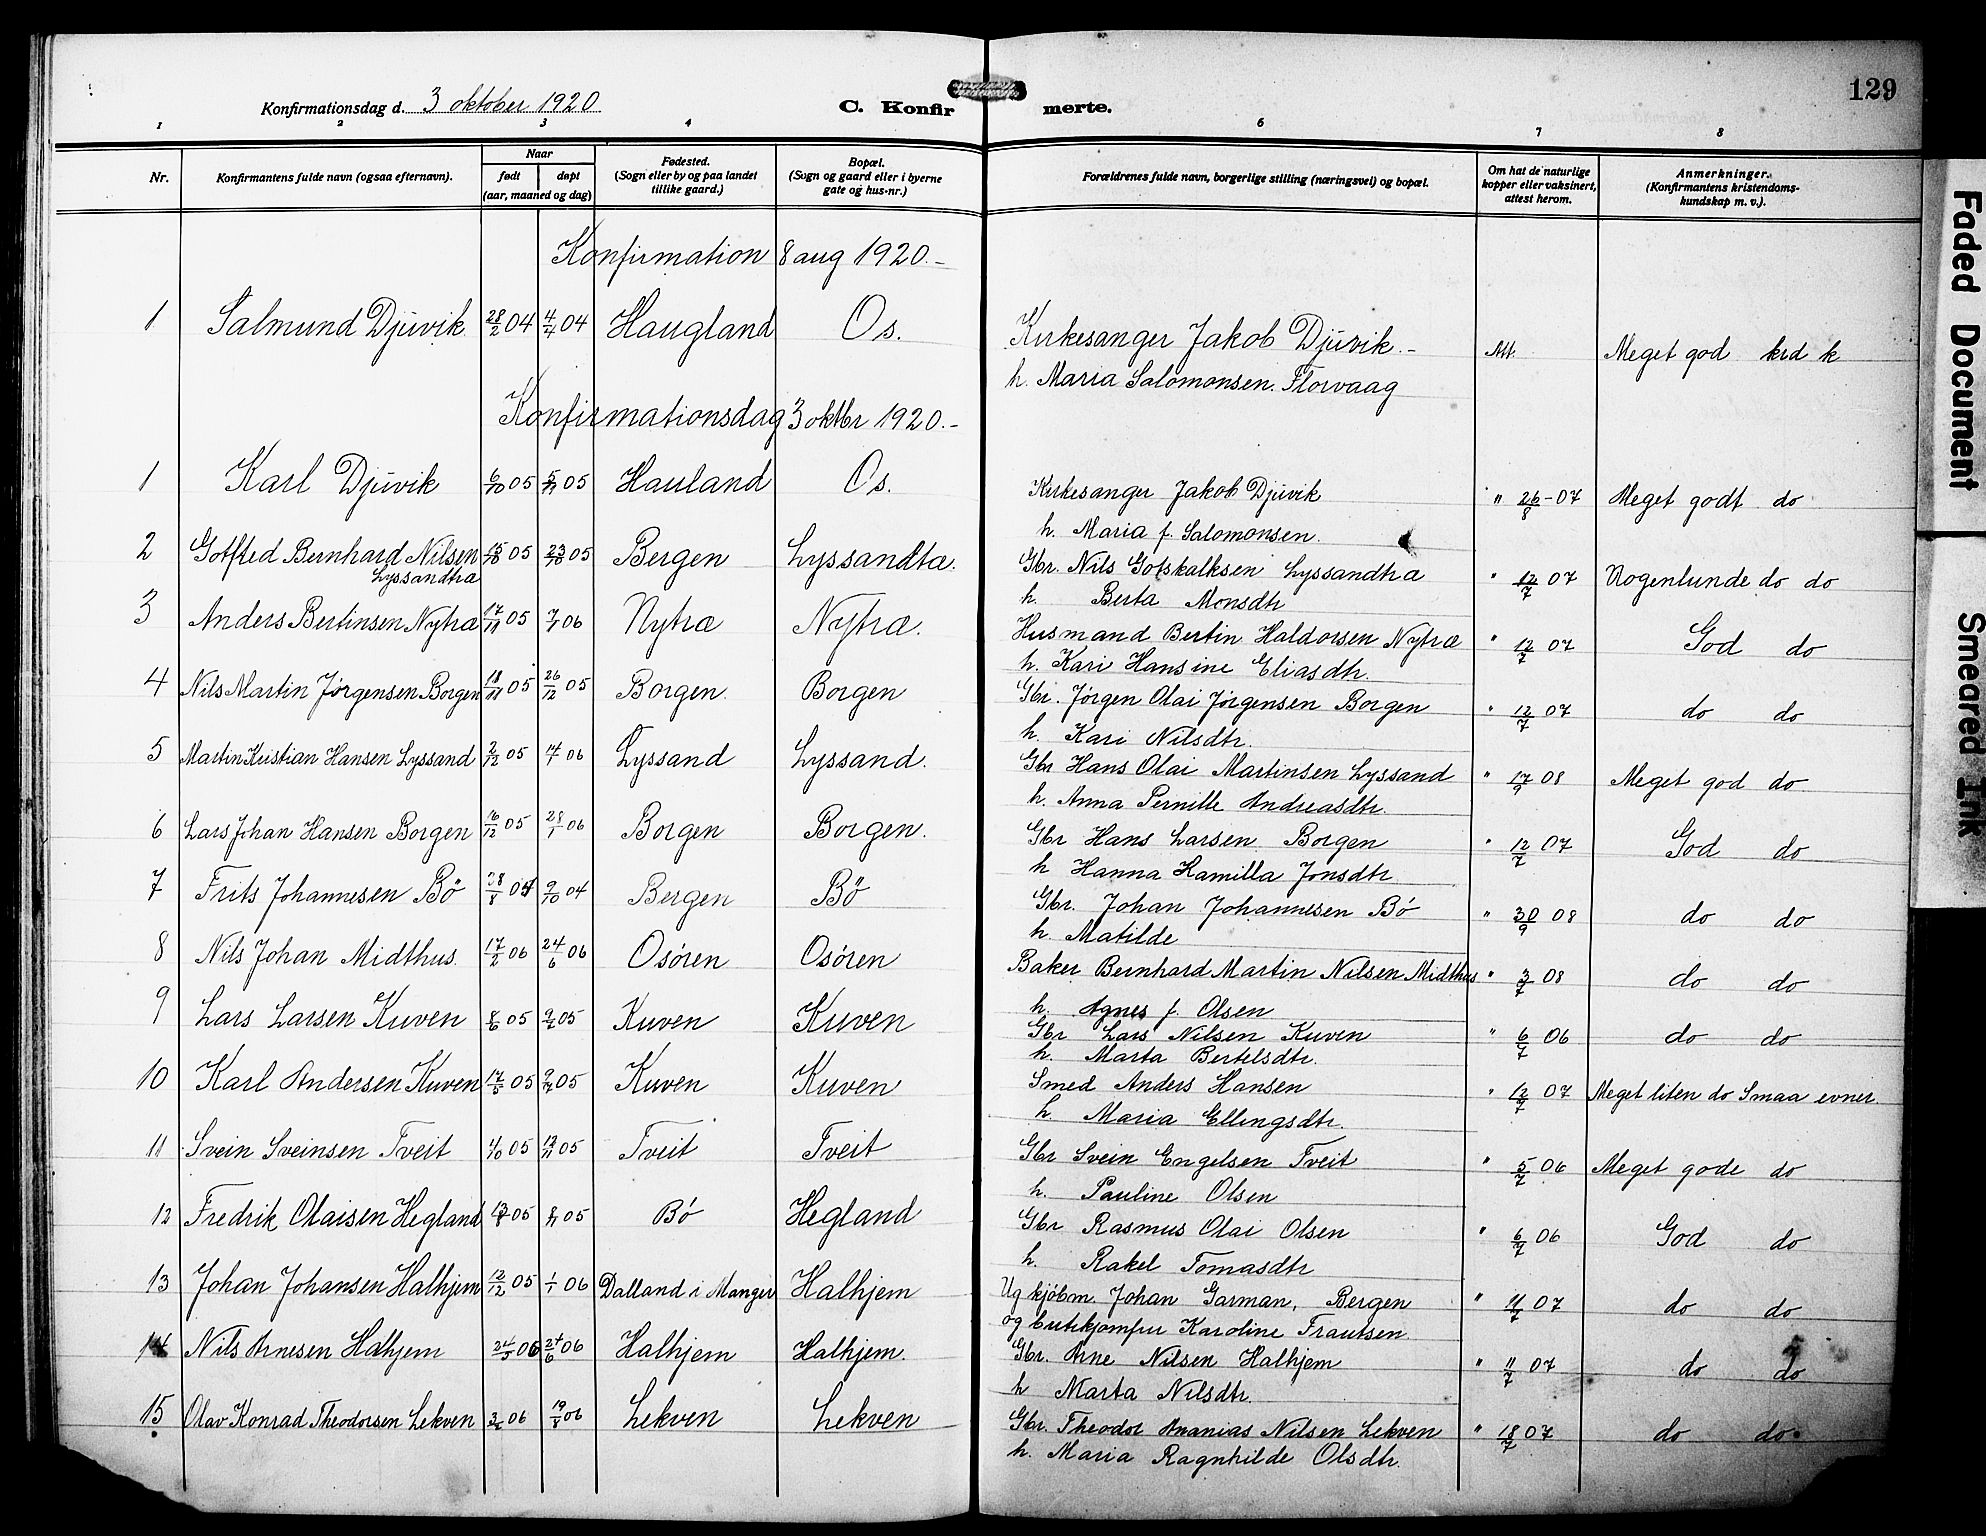 129
Konfirmationsdag d. 3 oktober 1920
C. Konfir merte.
1 2 3 4 6 7 8
Nr. Konfirmantens fulde navn (ogsaa efternavn). Naar født døpt (aar, maaned og dag) Fødested. (Sogn eller by og paa landet tillike gaard.) Bopæl. (Sogn og gaard eller i byerne gate og hus-nr.) Forældrenes fulde navn, borgerlige stilling (næringsvei) og bopæl. Om hat de naturlige kopper eller vaksinert, attest herom. Anmerkninger. (Konfirmantens kristendoms-kundskap m. v.).
Konfirmation 8 aug 1920.-
1 Salmund Djuvik 28/2 04 4/4 04 Haugland Os. Kirkesanger Jakob Djuvik.- Att. Meget god krd k
h. Maria Salomonsen. Florvaag
Konfirmationsdag 3 oktbr 1920.-
1 Karl Djuvik 6/10 05 5/11 05 Hauland Os. Kirkesanger Jakob Djuvik " 26/8 - 07 Meget godt do
h. Maria f. Salomonsen.
2 Gotfted Bernhard Nilsen Lyssandtræ 15/10 05 05 Bergen Lyssandtæ. Gbr. Nils Gotskalksen Lyssandtræ " 12/7 07 Nogenlunde do do
h. Berta Monsdtr
3 Anders Bertinsen Nytræ 17/11 05 7/1 06 Nytræ Nytræ. Husmand Bertin Haldorsen Nytræ " 12/7 07 God do
h. Kari Hansine Eliasdtr.
4 Nils Martin Jørgensen Borgen 18/11 05 26/12 05 Borgen. Borgen Gbr. Jørgen Olai Jørgensen Borgen " 12/7 07 do do
h. Kari Nilsdtr.
5 Martin Kristian Hansen Lyssand 2/12 05 06 Lyssand Lyssand. Gbr Hans Olai Martinsen Lyssand " 17/9 08 Meget god do
h. Anna Pernille Andreasdtr.
6 Lars Johan Hansen Borgen 16/12 05 28/1 06 Borgen Borgen. Gbr Hans Larsen Borgen " 12/7 07 God do
h Hanna Kamilla Jonsdtr
7 Frits Johannesen Bö 04 9/10 04 Bergen Bö Gbr. Johan Johannesen Bö " 30/9 08 do do
h. Matilde
8 Nils Johan Midthus. 17/2 06 24/6 06 Osören Osören Baker Bernhard Martin Nilsen Midthus " 3/7 08 do do
h. Agnes f. Olsen
9 Lars Larsen Kuven 8/6 05 9/7 05 Kuven Kuven Gbr Lars Nilsen Kuven " 6/7 06 do do
h. Marta Bertelsdtr.
10 Karl Andersen Kuven 17/5 05 9/7 05 Kuven Kuven Smed Anders Hansen " 12/7 07 Meget liten do Smaa evner.
h Maria Ellingsdtr.
11 Svein Sveinsen Tveit 4/10 05 12/11 05 Tveit Tveit Gbr Svein Engelsen Tveit " 5/7 06 Meget gode do
h. Pauline Olsen
12 Fredrik Olaisen Hegland 05 05 Bö Hegland Gbr Rasmus Olai Olsen " 6/7 06 God do
h. Rakel Tomasdtr
13 Johan Johansen Halhjem 12/12 05 1/1 06 Dalland i Manger Halhjem Ug kjøbm. Johan Garman, Bergen " 11/7 07 do do
og butikjomfru Karoline Frantsen
14 Nils Arnesen Halhjem 24/5 06 24/6 06 Halhjem Halhjem. Gbr. Arne Nilsen Halhjem " 11/7 07 do do
h Marta Nilsdtr.
15 Olav Konrad Theodorsen Lekven 06 19/8 06 Lekven Lekven Gbr. Theodor Ananias Nilsen Lekven " 18/7 07 do do
h. Maria Ragnhilde Olsdtr.
Faded Document
Smeared Ink